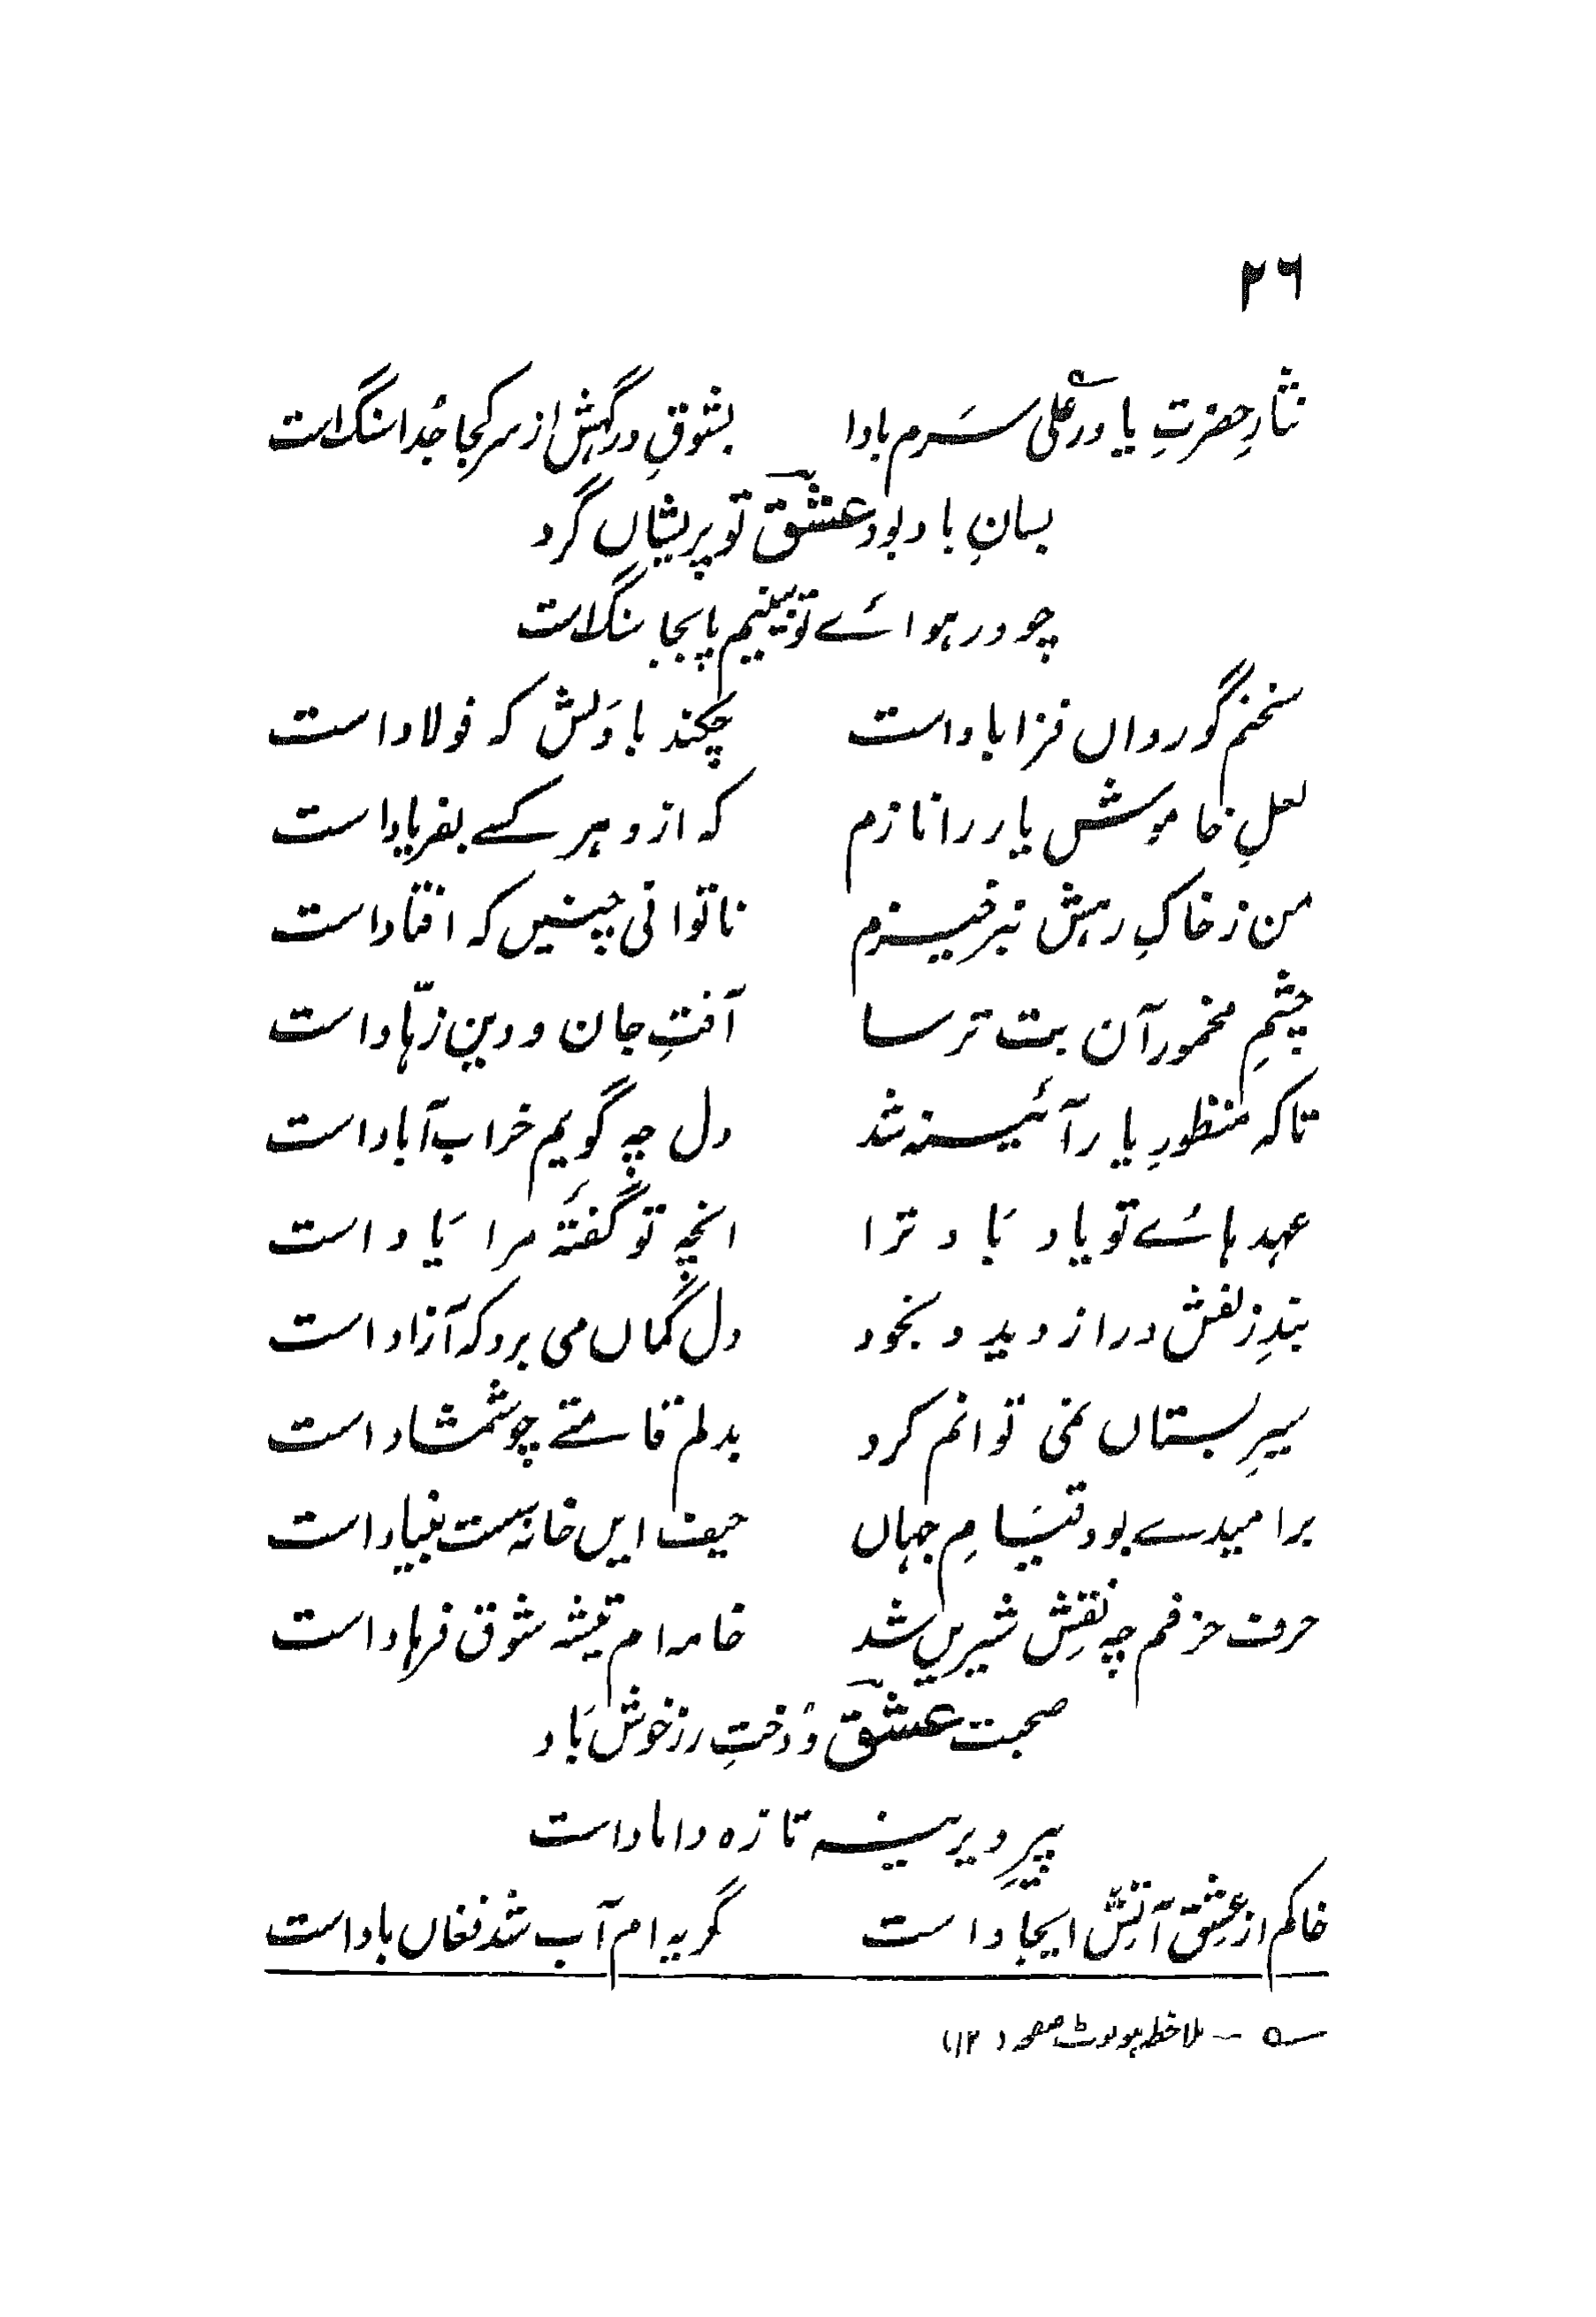 ۲۶
نثارِ حضرتِ یاور علی سَرم بادا بشوقِ درگہش از سر کجا جُدا سنگ است
بسانِ باد بود عشق تو پریشاں گرد
چو در ہوائے تو بینیم پا بجا سنگ است
سخنم گو رواں فزا باد است چکند با دَلش کہ فولاد است
لعلِ خاموش یار را نازم کہ ازو ہر کسے بفریاد است
من ز خاکِ رہش نبرخیزم ناتوانی چنیں کہ افتاد است
چشمِ مخمور آن بت ترسا آفتِ جان و دین زہّاد است
تاکہ منظورِ یار آئینہ شد دل چہ گویم خراب آباد است
عہدہائے تو یاد بَاد ترا انچہ تو گفتۂ مرا یَاد است
بندِ زلفش دراز دید و بخود دل گماں می برد کہ آزاد است
سیرِ بستاں نمی توانم کرد بدلم قامتے چو شمشاد است
بر امیدے بود قیَامِ جہاں حیف ایں خانہ سست بنیاد است
حرف حرفم چہ نقشِ شیریں شد خامہ ام تیشہ شوق فرہاد است
صحبت عشق و دُختِ رز خوش بَاد
پیرِ دیرینہ تازہ داماد است
خاکم از عشق آتش ایجاد است گریہ ام آب شد فغاں باد است
؎ ۔ ملاحظہ ہو نوٹ صفحہ (۱۲)